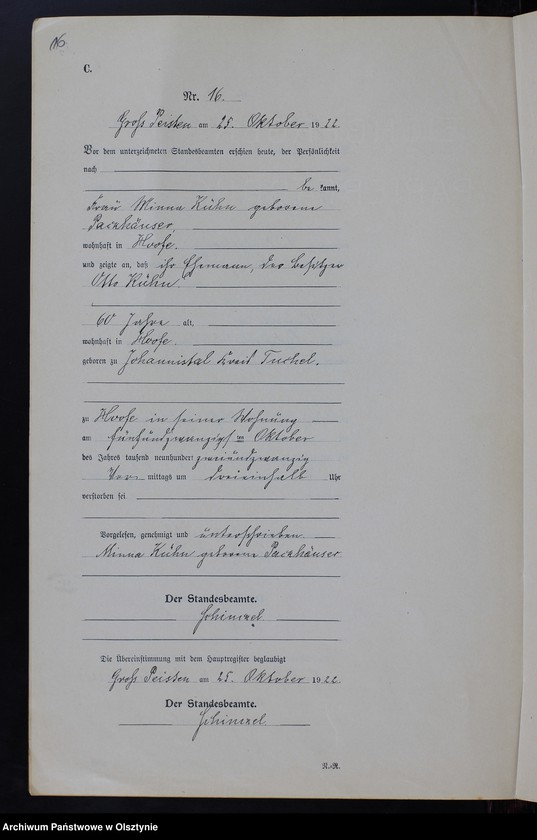 16
C.
Nr. 16.
Groß Peisten am 25. Oktober 1922
Vor dem unterzeichneten Standesbeamten erschien heute, der Persönlichkeit
nach
be kannt,
Frau Minna Kühn geborene
Packhäuser,
wohnhaft in Hoofe.
und zeigte an, daß ihr Ehemann, der Besitzer
Otto Kühn.
60 Jahre alt,
wohnhaft in Hoofe.
geboren zu Johannistal Kreis Tuchel.
zu Hoofe in seiner Wohnung
am fünfundzwanzigsten Oktober
des Jahres tausend neunhundert zweiundzwanzig
Vor mittags um dreieinhalb Uhr
verstorben sei
Vorgelesen, genehmigt und unterschrieben
Minna Kühn geborene Packhäuser.
Der Standesbeamte.
Schinzel
Die Übereinstimmung mit dem Hauptregister beglaubigt
Groß Peisten am 25. Oktober 1922
Der Standesbeamte.
Schinzel
N.-R.
Archiwum Państwowe w Olsztynie